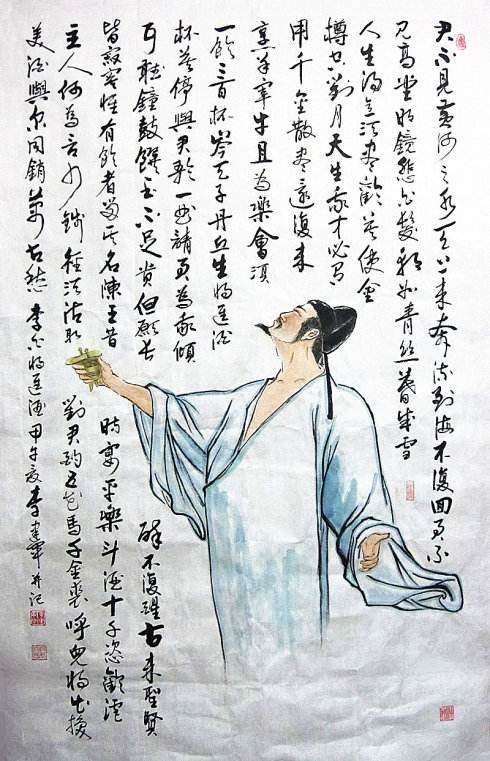 君不見黃河之水天上來奔流到海不復回君不
見高堂明鏡悲白髮朝如青絲暮成雪
人生得意須盡歡莫使金
樽空對月天生我才必有
用千金散盡還復來
烹羊宰牛且為樂會須
一飲三百杯岑夫子丹丘生將進酒
杯莫停與君歌一曲請君為我傾
耳聽鐘鼓饌玉不足貴但願長
醉不復醒古來聖賢
皆寂寞惟有飲者留其名陳王昔
時宴平樂斗酒十千恣歡謔
主人何為言少錢徑須沽取
對君酌五花馬千金裘呼兒將出換
美酒與爾同銷萬古愁 李白將進酒 甲午夏李建軍并記